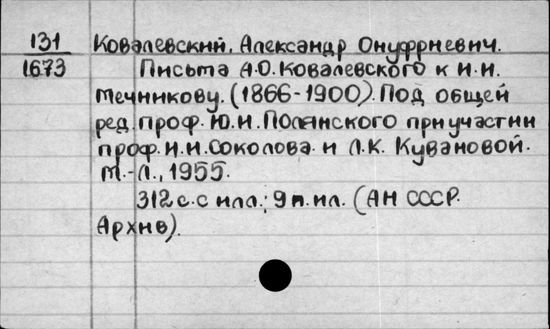 131 Ковалевский, Александр Онуфриевич.
1673 Письма А.О.Ковалевского к И.И.
Мечникову. (1866-1900). Под общей
ред. проф. Ю.И.Полянского при участии
проф. И.И.Соколова и Л.К. Кувановой.
М.-Л., 1955.
312 с. с илл.; 9 л. ил. (АН СССР.
Архив).